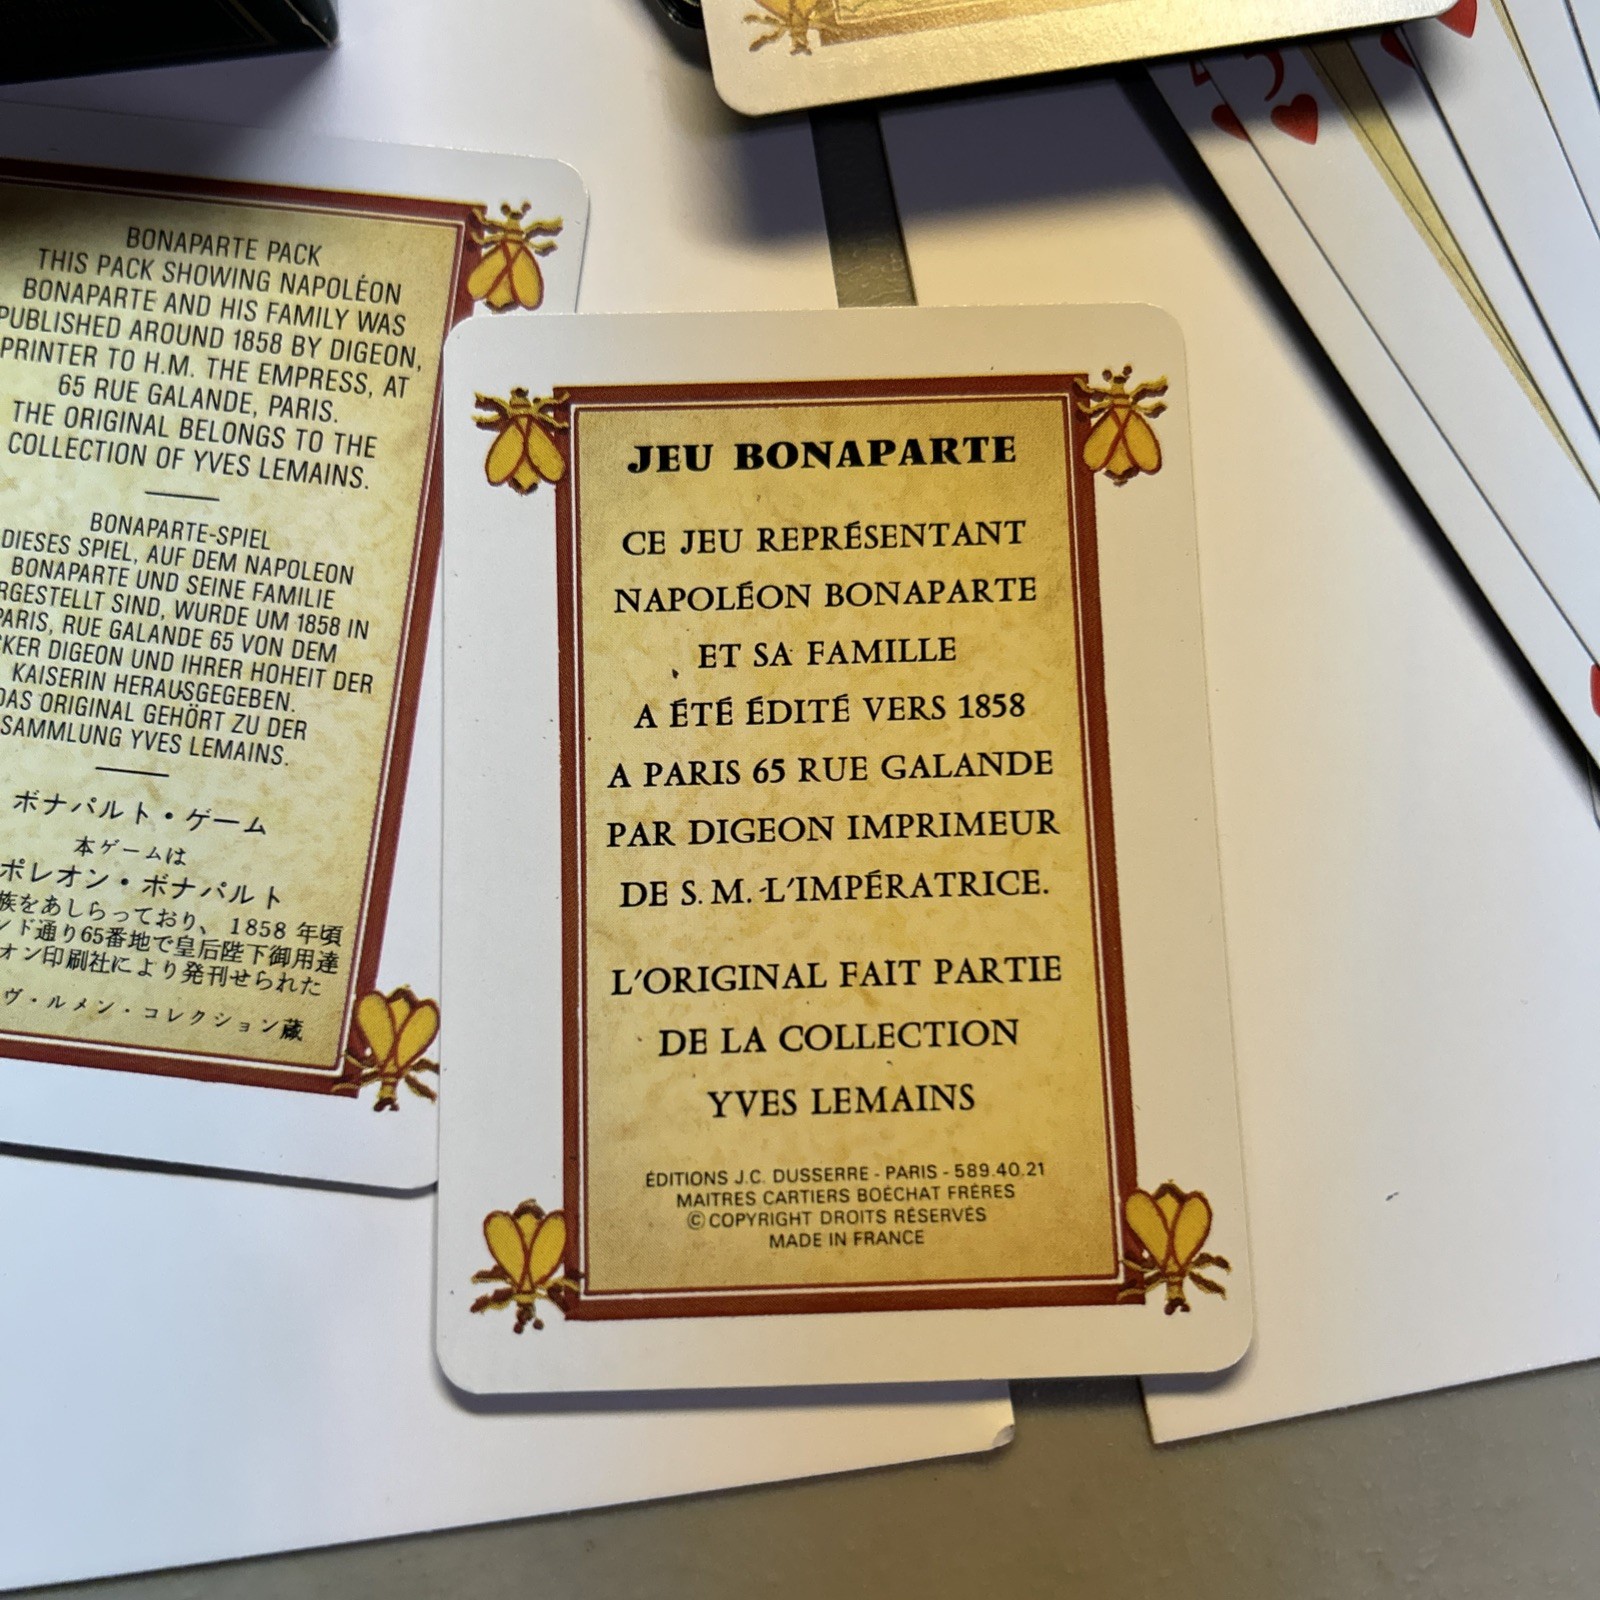 BONAPARTE PACK
THIS PACK SHOWING NAPOLÉON
BONAPARTE AND HIS FAMILY WAS
PUBLISHED AROUND 1858 BY DIGEON,
PRINTER TO H.M. THE EMPRESS, AT
65 RUE GALANDE, PARIS.
THE ORIGINAL BELONGS TO THE
COLLECTION OF YVES LEMAINS.
BONAPARTE-SPIEL
DIESES SPIEL, AUF DEM NAPOLEON
BONAPARTE UND SEINE FAMILIE
RGESTELLT SIND, WURDE UM 1858 IN
PARIS, RUE GALANDE 65 VON DEM
CKER DIGEON UND IHRER HOHEIT DER
KAISERIN HERAUSGEGEBEN.
DAS ORIGINAL GEHÖRT ZU DER
SAMMLUNG YVES LEMAINS.
ボナパルト・ゲーム
本ゲームは
ポレオン・ボナパルト
族をあしらっており、1858年頃
ンド通り65番地で皇后陛下御用達
オン印刷社により発刊せられた
ヴ・ルメン・コレクション蔵
JEU BONAPARTE
CE JEU REPRÉSENTANT
NAPOLÉON BONAPARTE
ET SA FAMILLE
A ÉTÉ ÉDITÉ VERS 1858
A PARIS 65 RUE GALANDE
PAR DIGEON IMPRIMEUR
DE S. M. L'IMPÉRATRICE.
L'ORIGINAL FAIT PARTIE
DE LA COLLECTION
YVES LEMAINS
ÉDITIONS J.C. DUSSERRE - PARIS - 589.40.21
MAITRES CARTIERS BOÉCHAT FRÈRES
© COPYRIGHT DROITS RÉSERVÉS
MADE IN FRANCE